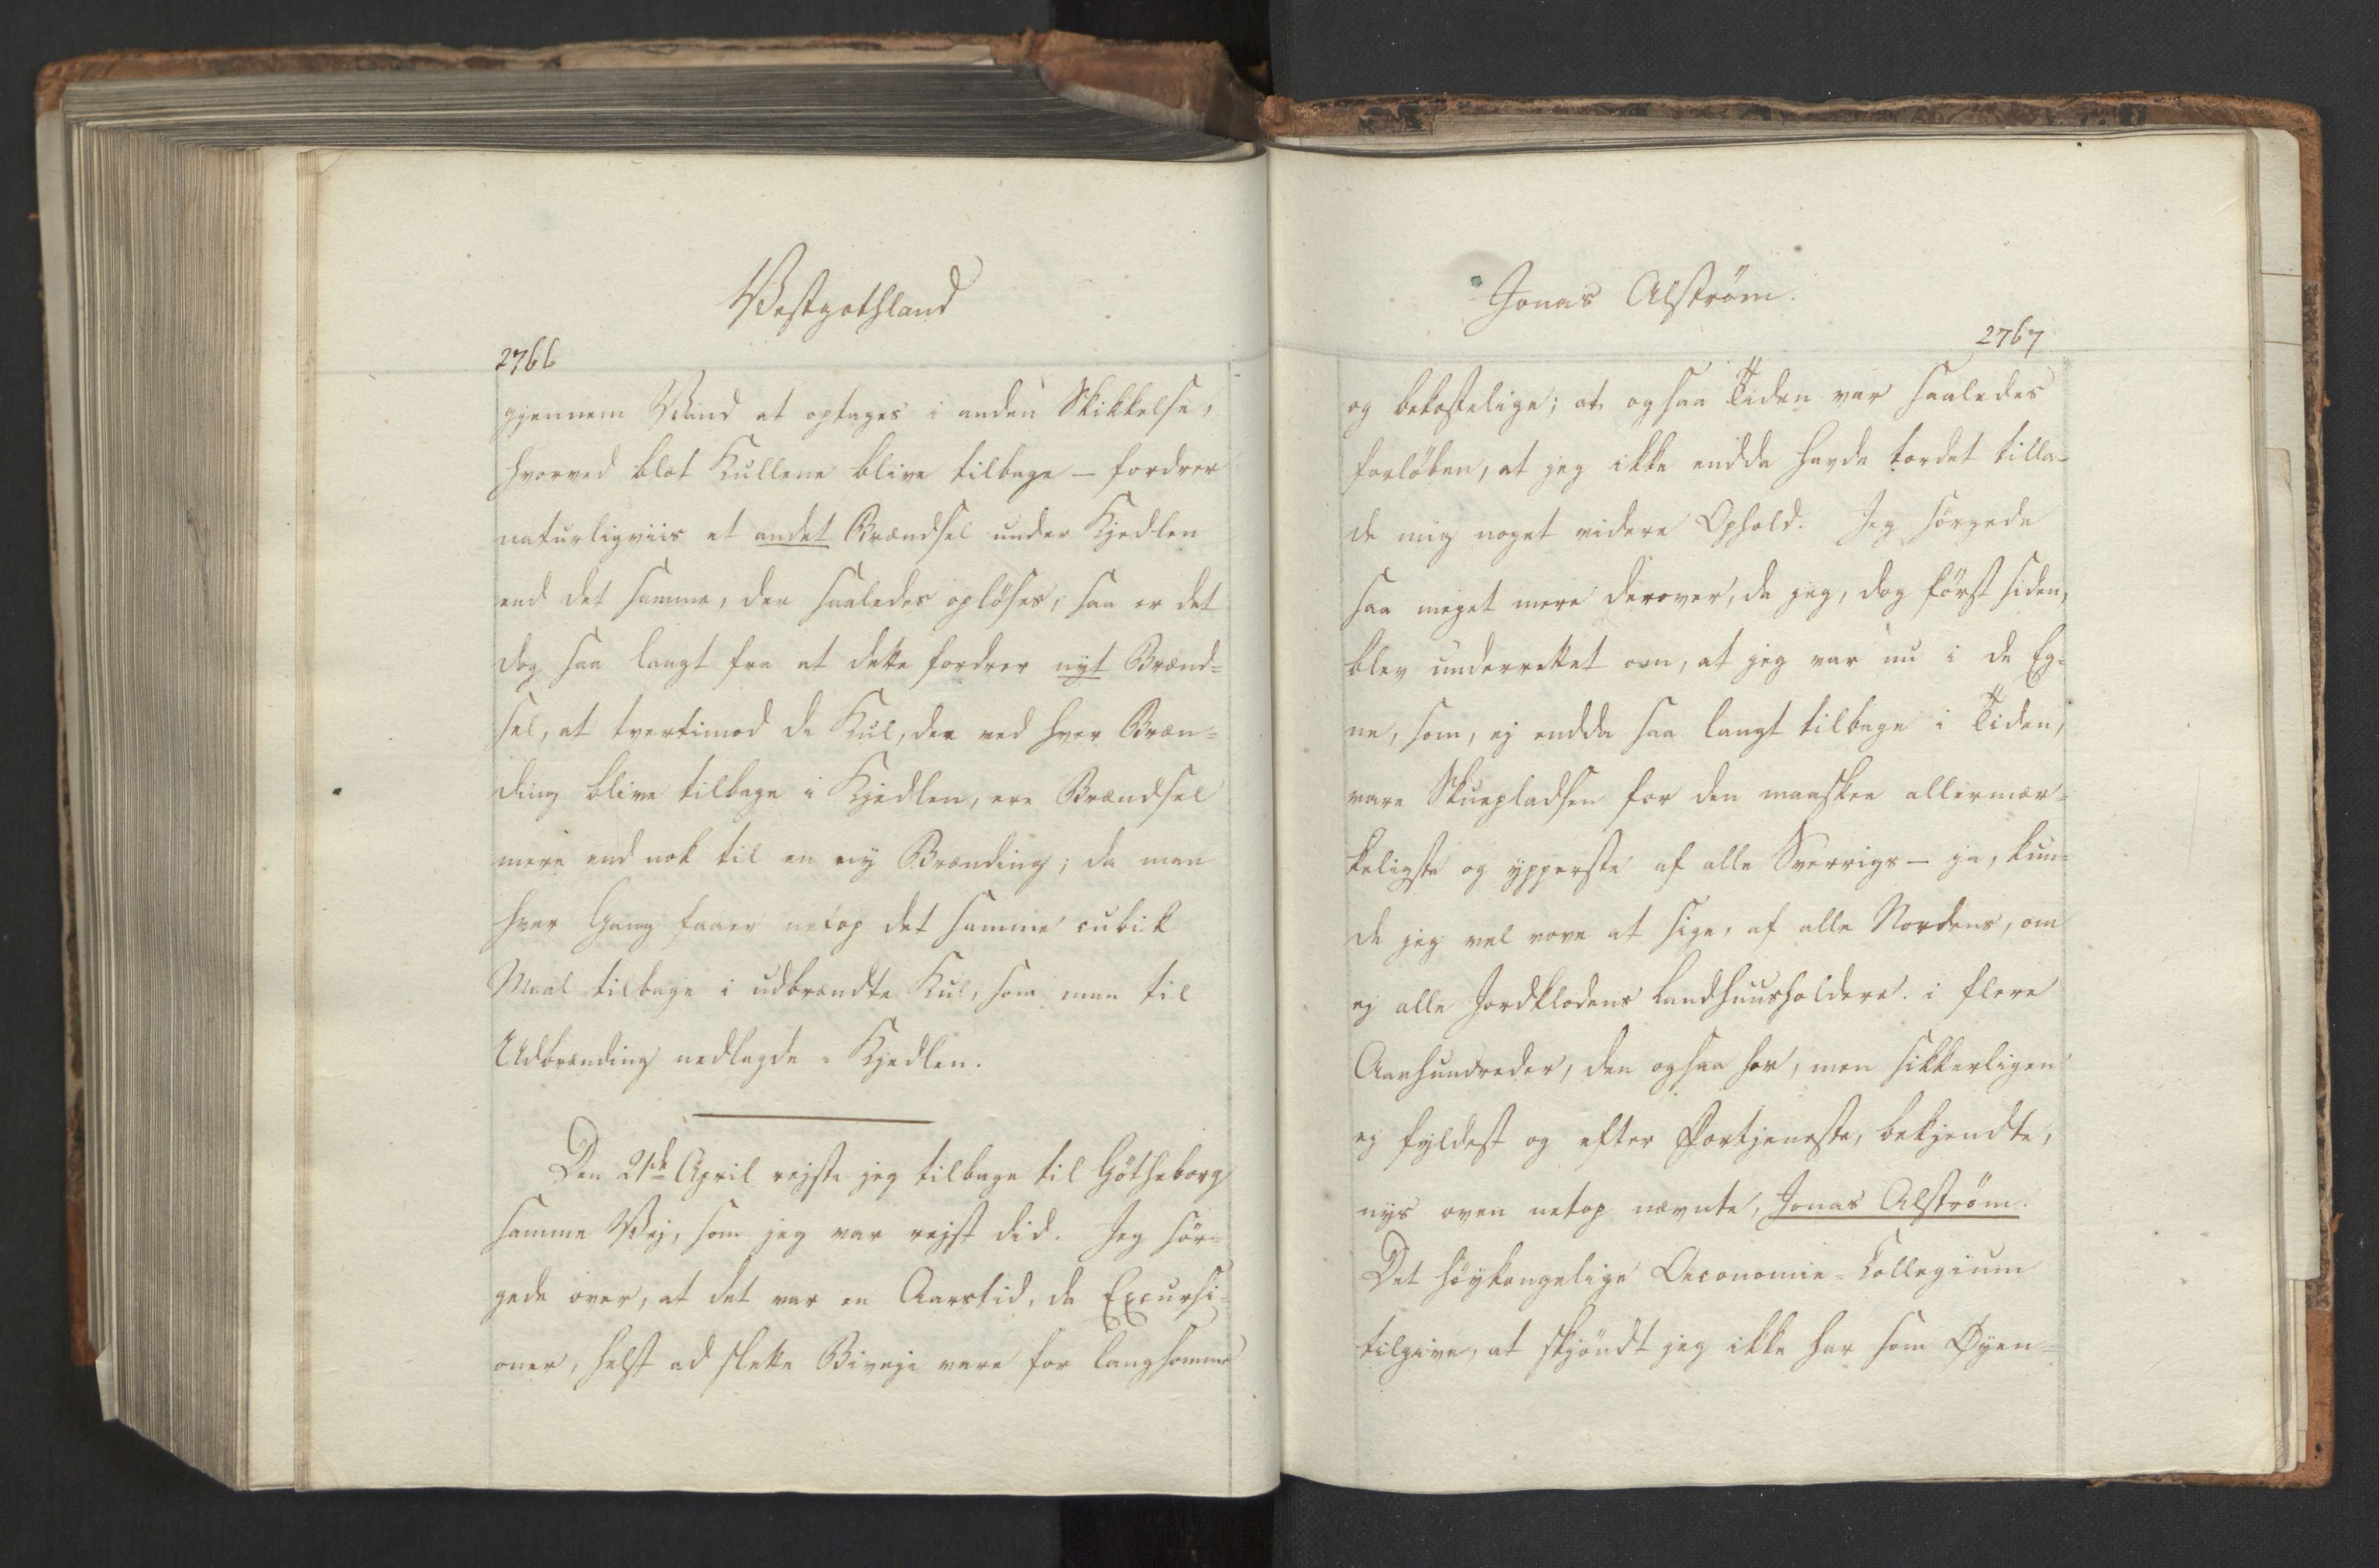 Vestgothland
2766
gjennem Vand at optages i anden Skikkelse,
hvorved blot Kullene blive tilbage — fordrer
naturligviis et andet Brændsel under Kjedlen
end det samme, der saaledes oplöses, saa er det
dog saa langt fra at dette fordrer nyt Brænd=
sel, at tvertimod de Kul, der ved hver Bræn=
ding blive tilbage i Kjedlen, ere Brændsel
mere end nok til en ny Brænding; da man
hver Gang faaer netop det samme cubik
Maal tilbage i udbrændte Kul, som man til
Udbrænding nedlagde i Kjedlen.
Den 21de April rejste jeg tilbage til Götheborg
samme Vej, som jeg var rejst did. Jeg sör=
gede over, at det var en Aarstid, da Excursi=
oner, helst ad slette Biveje vare for langsomme
Jonas Alström.
2767
og bekostelige; at ogsaa Tiden var saaledes
forlöben, at jeg ikke endda havde tordet tilla=
de mig noget videre Ophold. Jeg sörgede
saa meget mere derover, da jeg, dog först siden,
blev underrettet om, at jeg var nu i de Eg=
ne, som, ej endda saa langt tilbage i Tiden,
vare Skuepladsen for den maaskee allermær=
keligste og ypperste af alle Sverrigs — ja, kun=
de jeg vel vove at sige, af alle Nordens, om
ej alle Jordklodens Landhuusholdere i flere
Aarhundreder, den ogsaa her, men sikkerligen
ej fyldest og efter Fortjeneste, bekjendte,
nys oven netop nævnte, Jonas Alström.
Det höykongelige Oeconomie=Collegium
tilgive, at skjöndt jeg ikke har som Øyen=